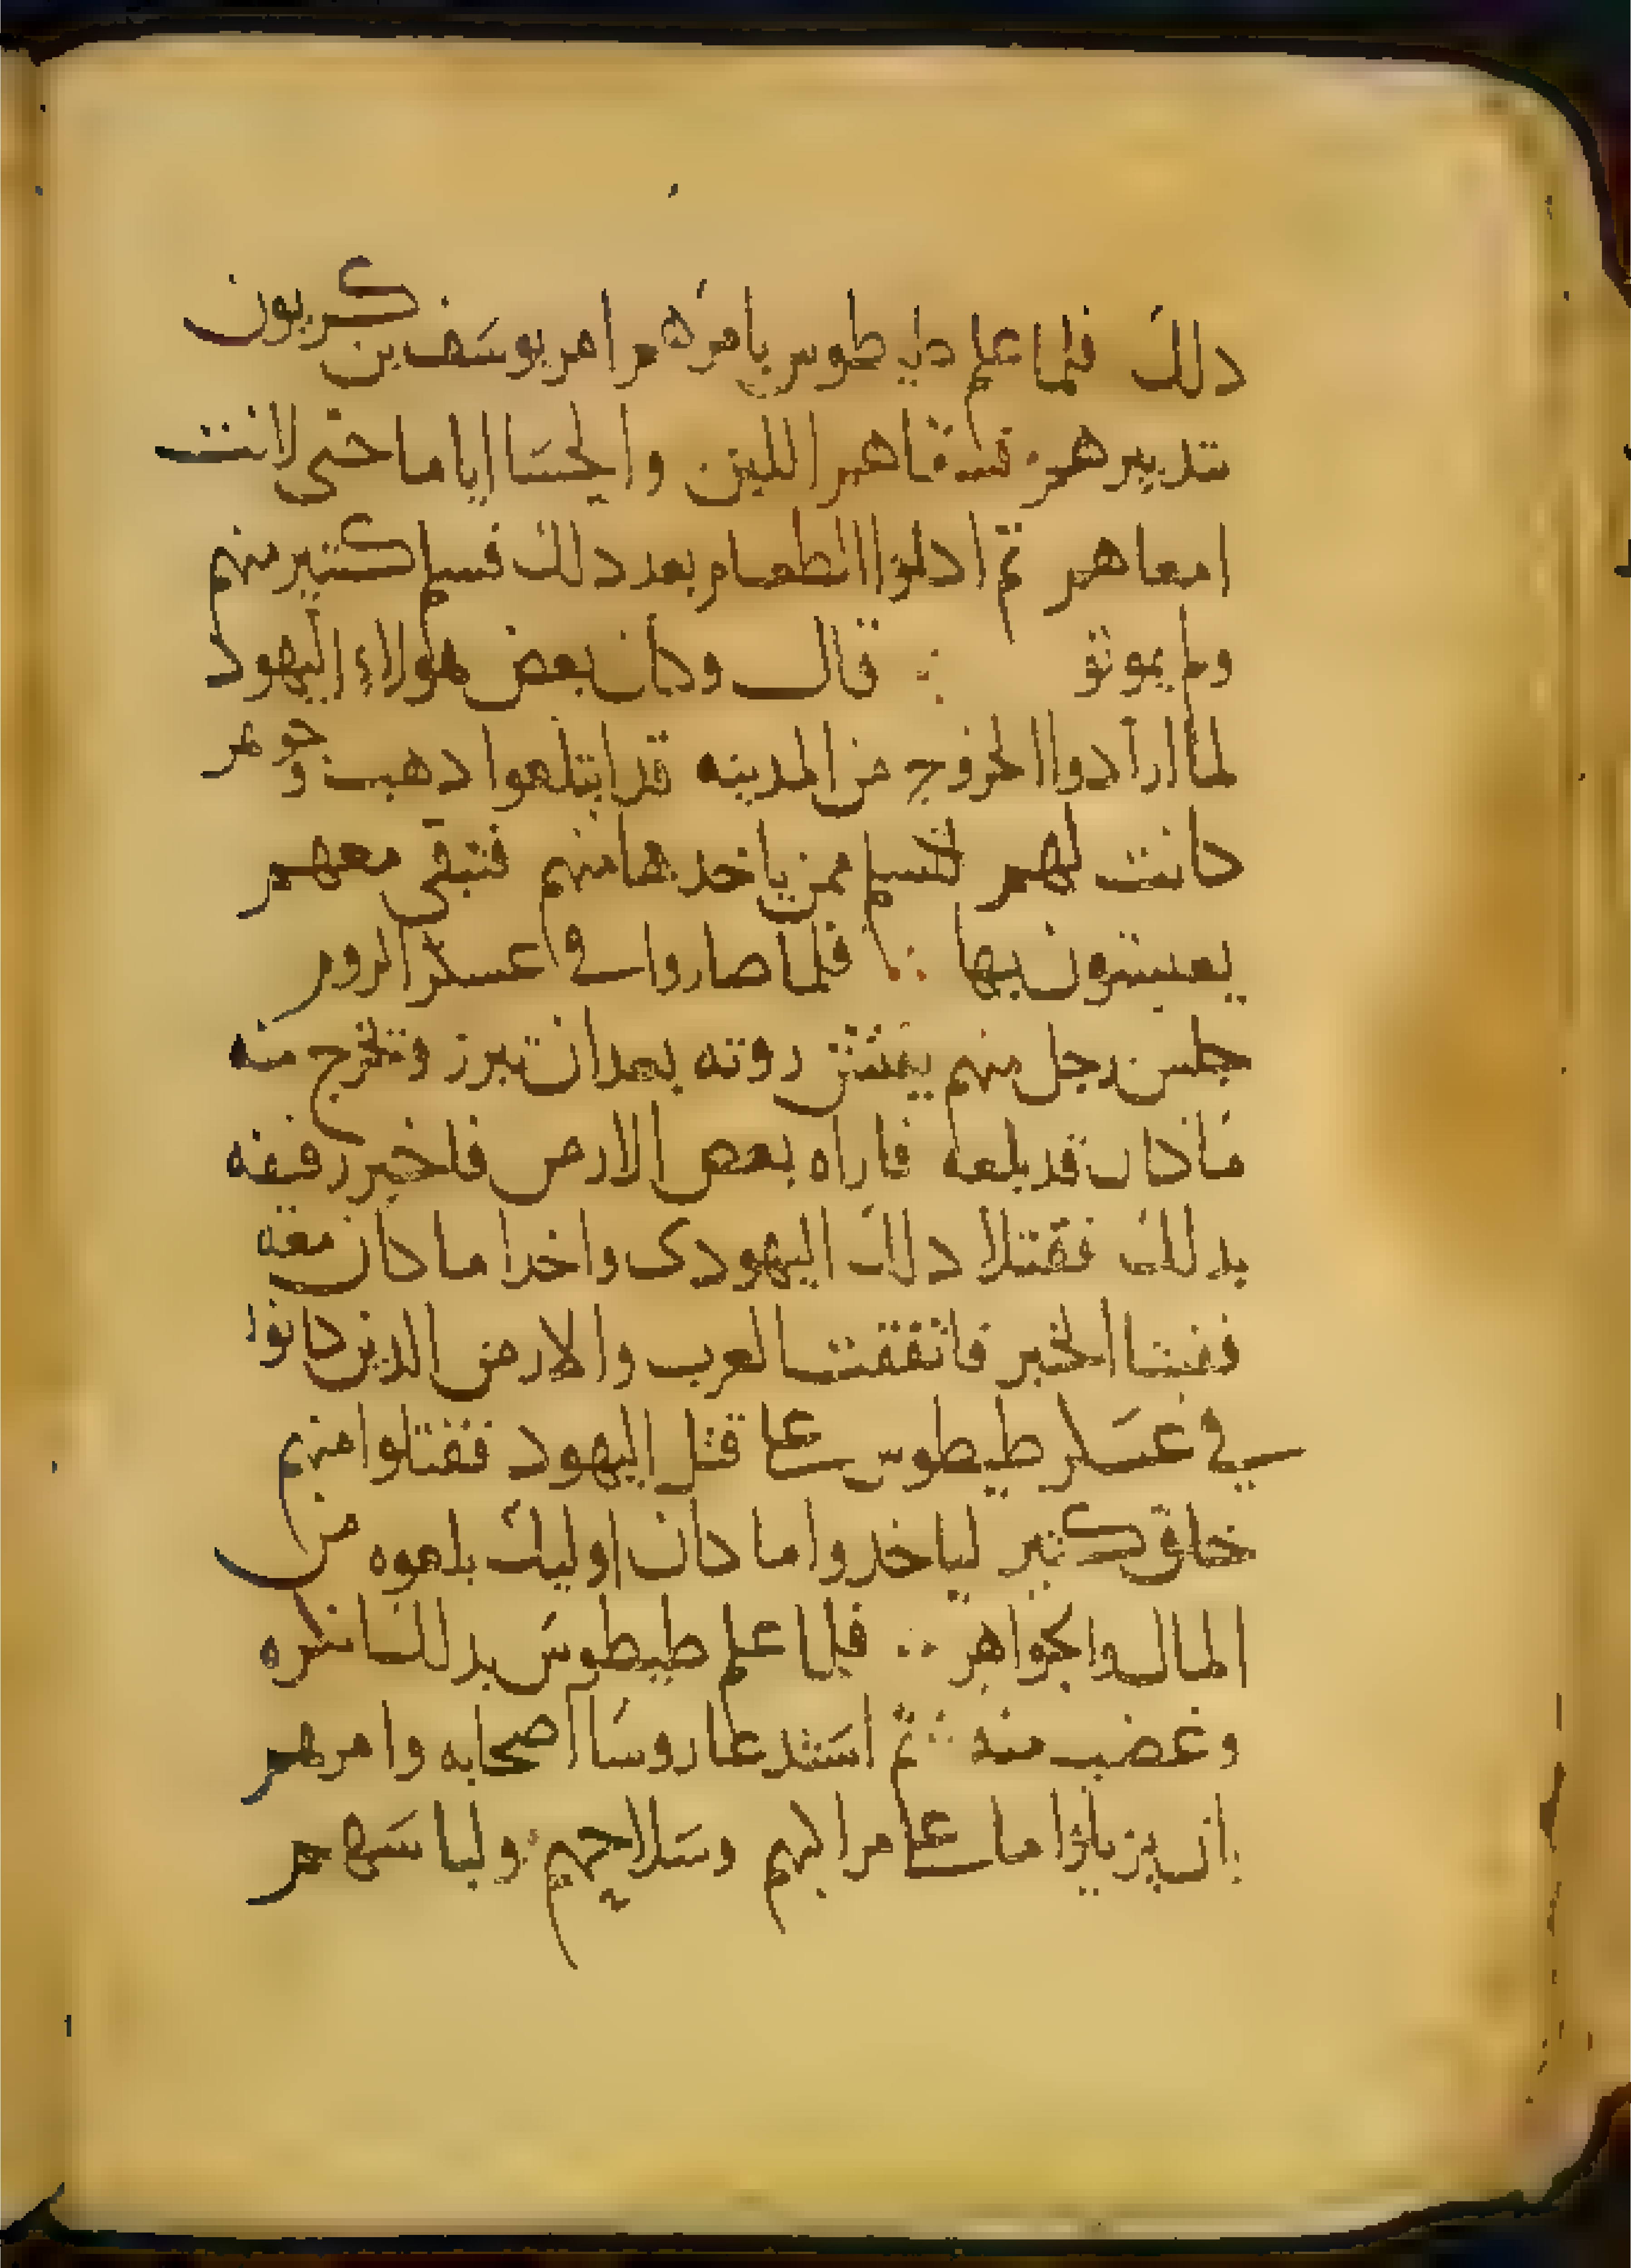 دلك فلما علم طيطوس بامرهم امر يوسف بن كريون
بتدبيرهم فسقاهم اللبن والحسا اياما حتى لانت
امعاهم تم ادلوا الطعام بعد دلك فسلم كتير منهم
ولم يموتو ∴ قال وكان بعض هولاء اليهود
لما ارادوا الخروج من المدينه قد ابتلعوا دهب وجوهر
كانت لهم لتسلم ممن ياخدها منهم فتبقى معهم
يعيشون بها ∴ فلما صاروا في عسكر الروم
جلس رجل منهم يفتش روته بعد ان تبرز وتخرج منه
ما كان قد بلعه فاراه بعض الارمن فاخبر رفيقه
بدلك فقتلا دلك اليهودى واخدا ما كان معه
ففشا الخبر فاتفقت العرب والارمن الدين كانوا
في عسكر طيطوس على قتل اليهود فقتلوا منهم
خلق كتير لياخدوا ما كان اوليك بلعوه من
المال والجواهر .. فلما علم طيطوس بدلك انكره
وغضب منه ∴ تم استدعا روسا اصحابه وامرهم
بان يزيلوا ما على مراكبهم وسلاحهم ولباسهم